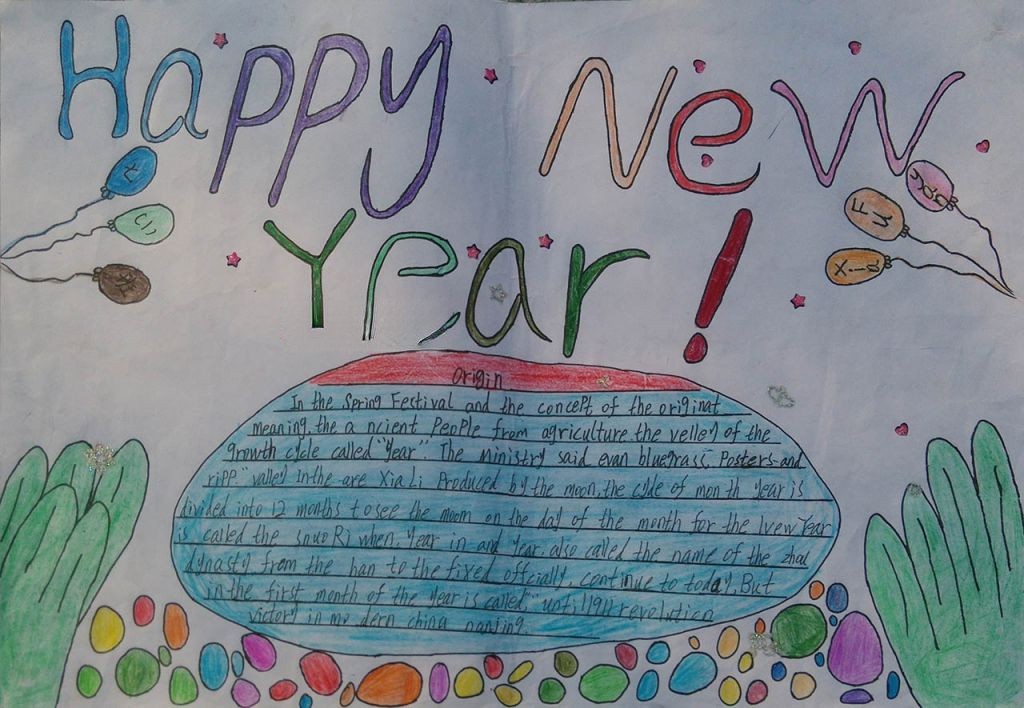 Happy New
Year!
Fu
Xia
Origin
In the Spring Festival and the concept of the originat
meaning, the a ncient People from agriculture the velley of the
growth cycle called "Year". The ministry said evan bluegrass. Posters and
ripp" valley In the are Xia Li Produced by the moon, the cycle of month year is
divided into 12 months to see the moom on the day of the month for the lvew Year
is called the snuo Ri when, Year in and year. also called the name of the zhou
dynasty from the han to the fixed offcially, continue to today, But
in the first month of the Year is called" until 1911 revolution
victory in mo dern china nanjing.